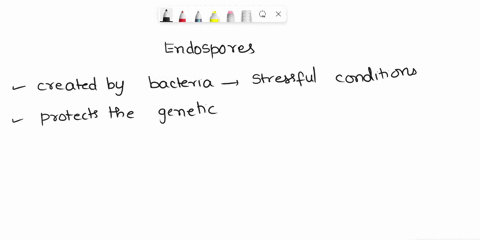 Endospores
✓ created by bacteria → stressful conditions
✓ protects the genetic